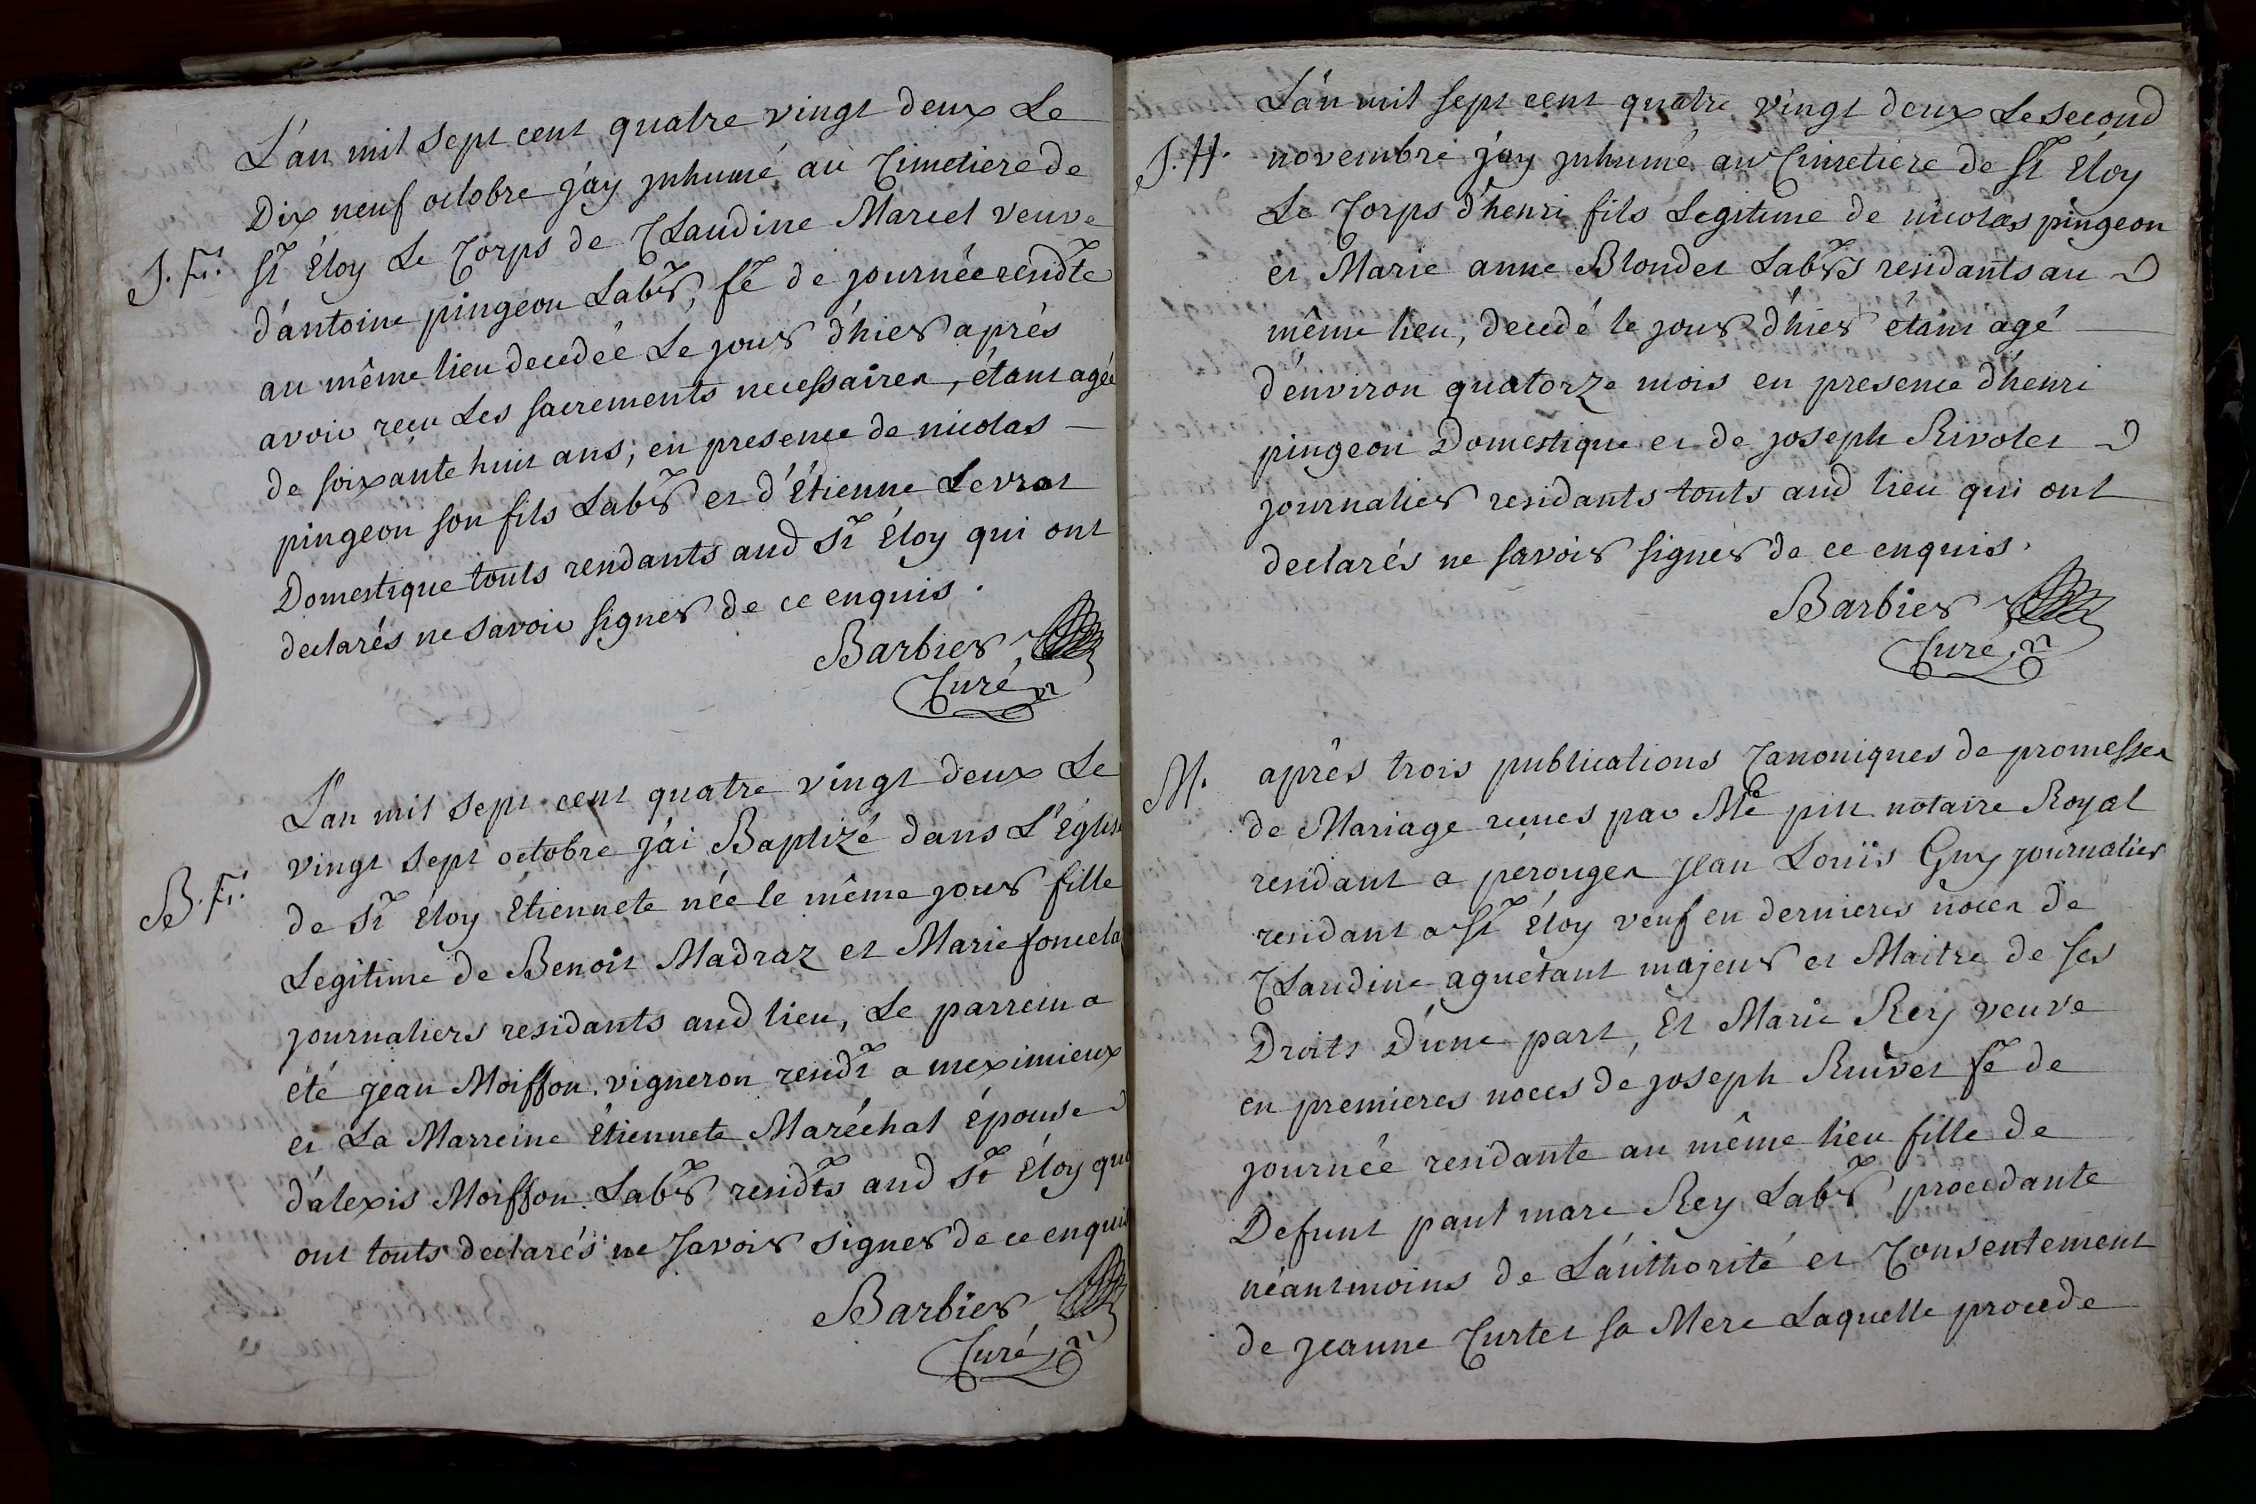 L'an mil sept cent quatre vingt deux Le
Dix neuf octobre j'ay inhumé au Cimetiere de
J. F. St Éloy Le Corps de Claudine Marcel veuve
d'antoine pingeon Labr, fe de journée residte
au même lieu decedée Le jour d'hier aprés
avoir reçu Les sacrements necessaires, étant agée
de soixante huit ans; en presence de nicolas
pingeon son fils Labr et d'Étienne Levrat
Domestique touts residants aud St Éloy qui ont
declarés ne savoir signer de ce enquis.
Barbier
Curé
L'an mil sept cent quatre vingt deux Le
vingt sept octobre j'ai Baptizé dans L'Église
B. F. de St Éloy Étiennete née le même jour fille
Legitime de Benoit Madraz et Marie
journaliers residants aud lieu, Le parrein a
été jean Moisson vigneron residt a meximieux
et La Marreine Étiennete Maréchal épouse
d'alexis Moisson Labr residts aud St Éloy qui
ont touts declarés ne savoir signer de ce enquis
Barbier
Curé
L'an mil sept cent quatre vingt deux Le second
J. H. novembre j'ay inhumé au Cimetiere de St Éloy
Le Corps d'henri fils Legitime de nicolas pingeon
et Marie anne Blondet Labrs residants au
même lieu, decedé le jour d'hier étant agé
d'environ quatorze mois en presence d'henri
pingeon Domestique et de joseph Rivolet
journalier residants touts aud lieu qui ont
declarés ne savoir signer de ce enquis.
Barbier
Curé
M. aprês trois publications Canoniques de promesses
de Mariage reçues par Me pin notaire Royal
residant a perouges jean Louis Guy journalier
residant a St Éloy veuf en dernieres noces de
Claudine aguetant majeur et Maitre de ses
Droits D'une part, Et Marie Rey veuve
en premieres noces de joseph Ruivet fe de
journée residante au même lieu fille de
Defunt paul marc Rey Labr procedante
néantmoins de L'authorité et Consentement
de jeanne Curtet sa Mere Laquelle procede